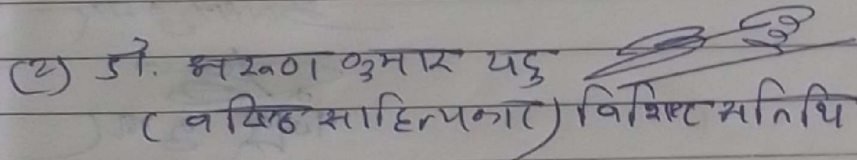 (2) डॉ. अरुण कुमार यदु
(वरिष्ठ साहित्यकार) विशिष्ट अतिथि